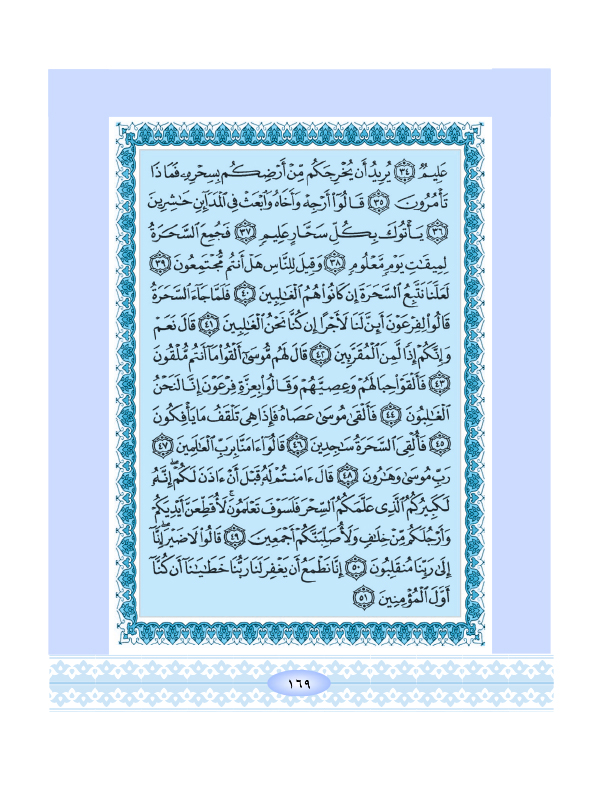 عَلِيمٌ ﴿٣٤﴾ يُرِيدُ أَن يُخْرِجَكُم مِّنْ أَرْضِكُم بِسِحْرِهِۦ فَمَاذَا
تَأْمُرُونَ ﴿٣٥﴾ قَالُوٓا۟ أَرْجِهْ وَأَخَاهُ وَٱبْعَثْ فِى ٱلْمَدَآئِنِ حَـٰشِرِينَ
﴿٣٦﴾ يَأْتُوكَ بِكُلِّ سَحَّارٍ عَلِيمٍ ﴿٣٧﴾ فَجُمِعَ ٱلسَّحَرَةُ
لِمِيقَـٰتِ يَوْمٍ مَّعْلُومٍ ﴿٣٨﴾ وَقِيلَ لِلنَّاسِ هَلْ أَنتُم مُّجْتَمِعُونَ ﴿٣٩﴾
لَعَلَّنَا نَتَّبِعُ ٱلسَّحَرَةَ إِن كَانُوا۟ هُمُ ٱلْغَـٰلِبِينَ ﴿٤٠﴾ فَلَمَّا جَآءَ ٱلسَّحَرَةُ
قَالُوا۟ لِفِرْعَوْنَ أَئِنَّ لَنَا لَأَجْرًا إِن كُنَّا نَحْنُ ٱلْغَـٰلِبِينَ ﴿٤١﴾ قَالَ نَعَمْ
وَإِنَّكُمْ إِذًا لَّمِنَ ٱلْمُقَرَّبِينَ ﴿٤٢﴾ قَالَ لَهُم مُّوسَىٰٓ أَلْقُوا۟ مَآ أَنتُم مُّلْقُونَ
﴿٤٣﴾ فَأَلْقَوْا۟ حِبَالَهُمْ وَعِصِيَّهُمْ وَقَالُوا۟ بِعِزَّةِ فِرْعَوْنَ إِنَّا لَنَحْنُ
ٱلْغَـٰلِبُونَ ﴿٤٤﴾ فَأَلْقَىٰ مُوسَىٰ عَصَاهُ فَإِذَا هِىَ تَلْقَفُ مَا يَأْفِكُونَ
﴿٤٥﴾ فَأُلْقِىَ ٱلسَّحَرَةُ سَـٰجِدِينَ ﴿٤٦﴾ قَالُوٓا۟ ءَامَنَّا بِرَبِّ ٱلْعَـٰلَمِينَ ﴿٤٧﴾
رَبِّ مُوسَىٰ وَهَـٰرُونَ ﴿٤٨﴾ قَالَ ءَامَنتُمْ لَهُۥ قَبْلَ أَنْ ءَاذَنَ لَكُمْ ۖ إِنَّهُۥ
لَكَبِيرُكُمُ ٱلَّذِى عَلَّمَكُمُ ٱلسِّحْرَ فَلَسَوْفَ تَعْلَمُونَ ۚ لَأُقَطِّعَنَّ أَيْدِيَكُمْ
وَأَرْجُلَكُم مِّنْ خِلَـٰفٍ وَلَأُصَلِّبَنَّكُمْ أَجْمَعِينَ ﴿٤٩﴾ قَالُوا۟ لَا ضَيْرَ ۖ إِنَّآ
إِلَىٰ رَبِّنَا مُنقَلِبُونَ ﴿٥٠﴾ إِنَّا نَطْمَعُ أَن يَغْفِرَ لَنَا رَبُّنَا خَطَـٰيَـٰنَآ أَن كُنَّآ
أَوَّلَ ٱلْمُؤْمِنِينَ ﴿٥١﴾
١٦٩